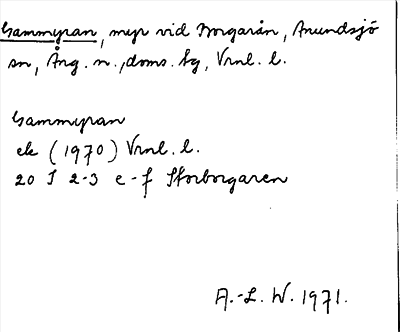 Gammyran, myr vid Borgarån, Anundsjö
sn, Ång. n., doms. hg, Vrnl. l.
Gammyran
ek (1970) Vrnl. l.
20 I 2-3 e-f Storborgaren
A.-L. W. 1971.